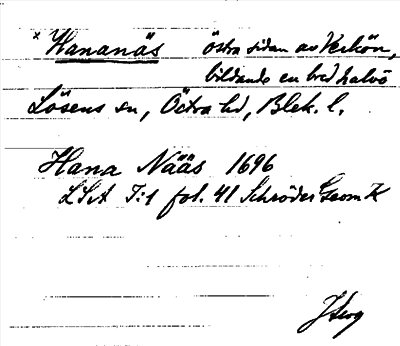 × Hananäs östra sidan av Verkön,
bildande en bred halvö
Lösens sn, Östra hd, Blek. l.
Hana Nääs 1696
LSA I:1 fol. 41 Schröder Geom K